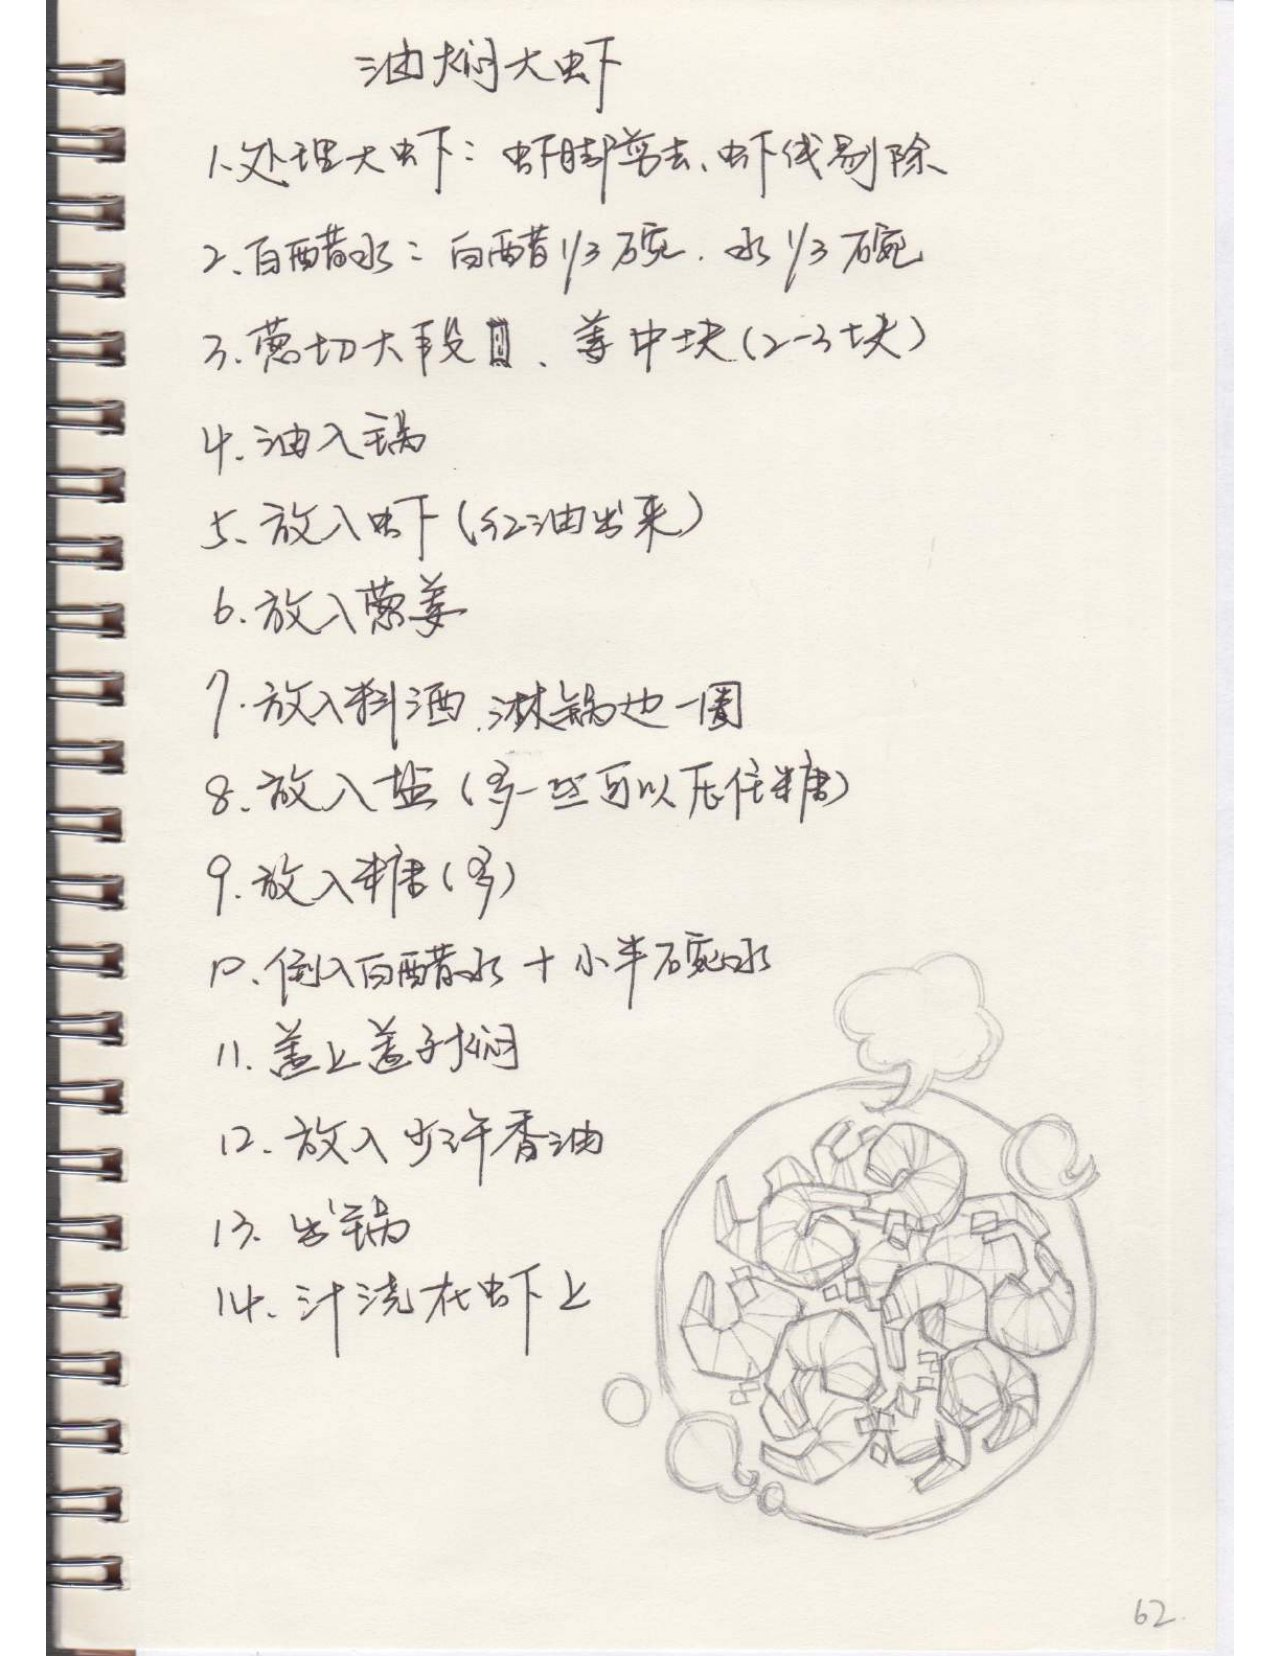 油焖大虾
1.处理大虾：虾脚剪去、虾线剔除
2.白醋水：白醋1/3碗.水1/3碗
3.葱切大段、姜中块(2-3块)
4.油入锅
5.放入虾(红油出来)
6.放入葱姜
7.放入料酒.淋锅边一圈
8.放入盐(多一些可以压住糖)
9.放入糖(多)
10.倒入白醋水+小半碗水
11.盖上盖子焖
12.放入少许香油
13.出锅
14.汁浇在虾上
62.